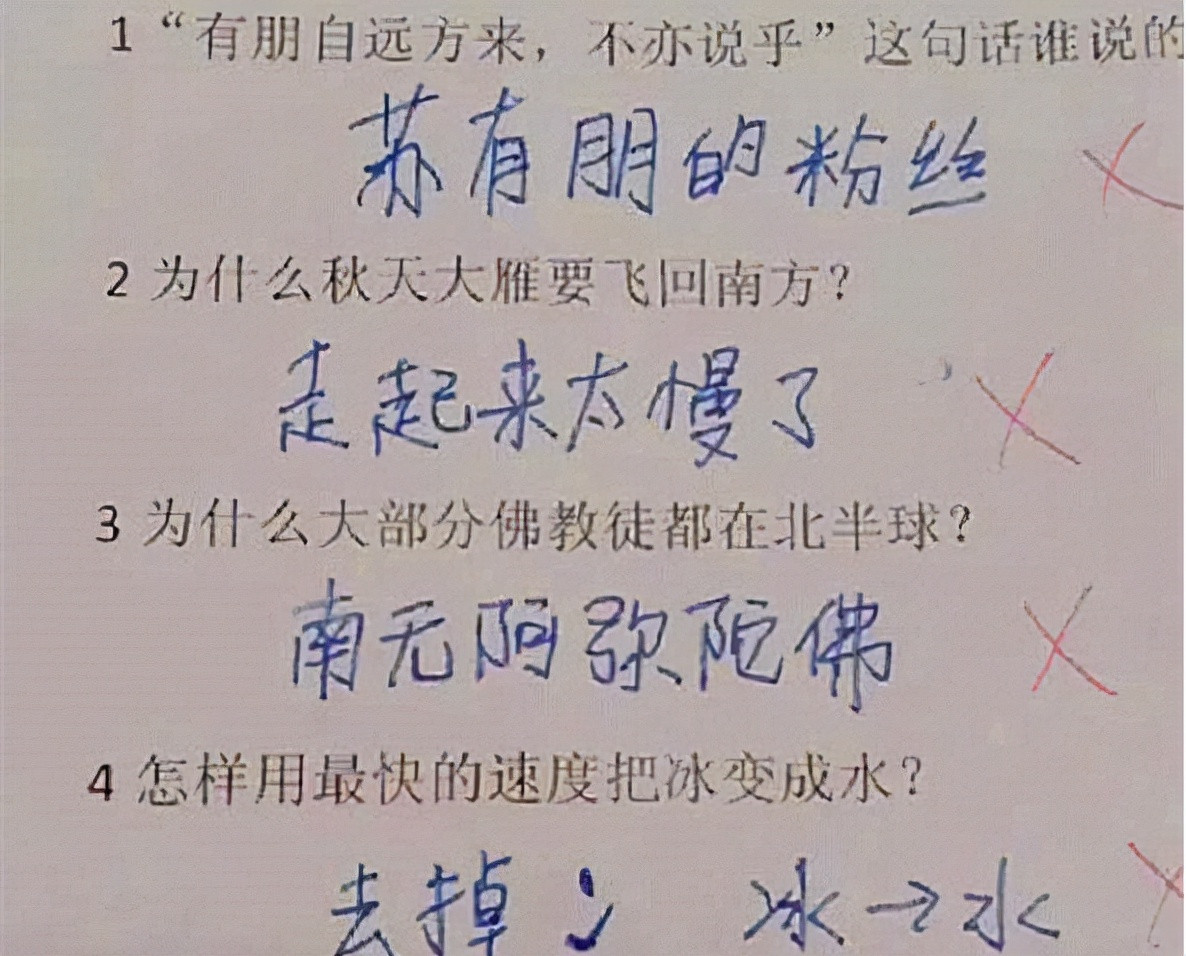 1 “有朋自远方来，不亦说乎”这句话谁说的
苏有朋的粉丝
2 为什么秋天大雁要飞回南方？
走起来太慢了
3 为什么大部分佛教徒都在北半球？
南无阿弥陀佛
4 怎样用最快的速度把冰变成水？
去掉冫 冰→水